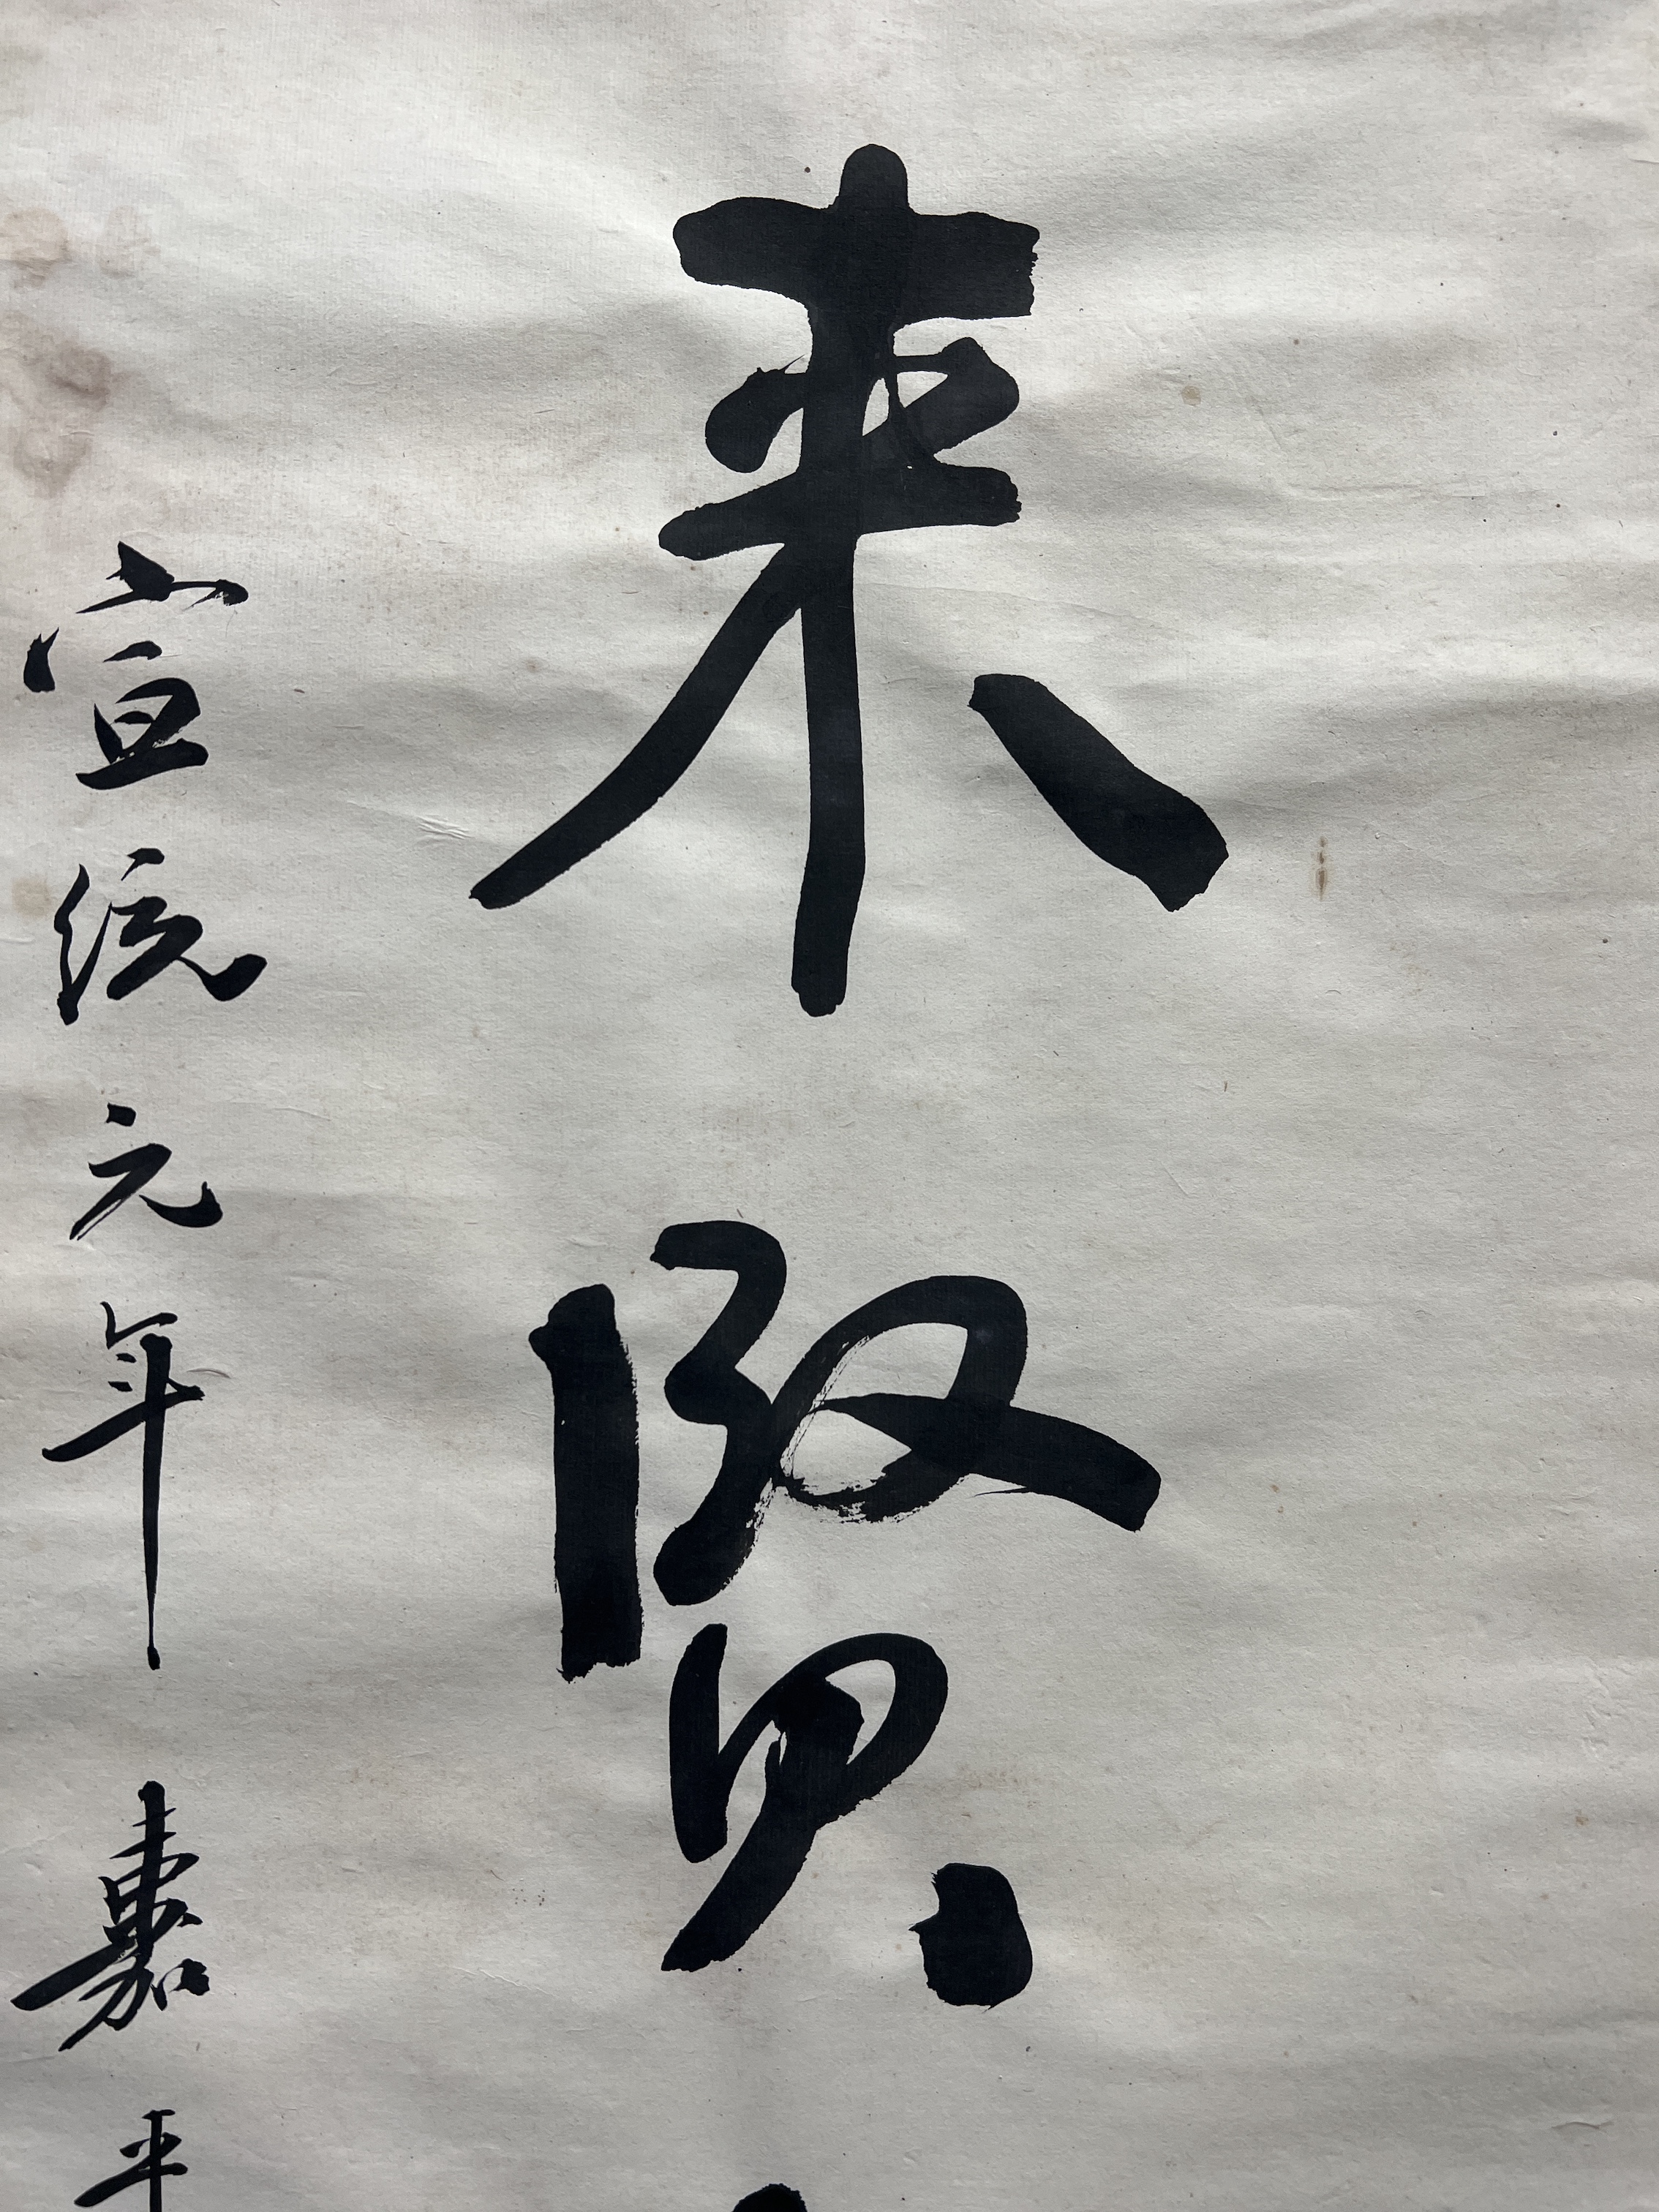 来賢
宣統元年嘉平